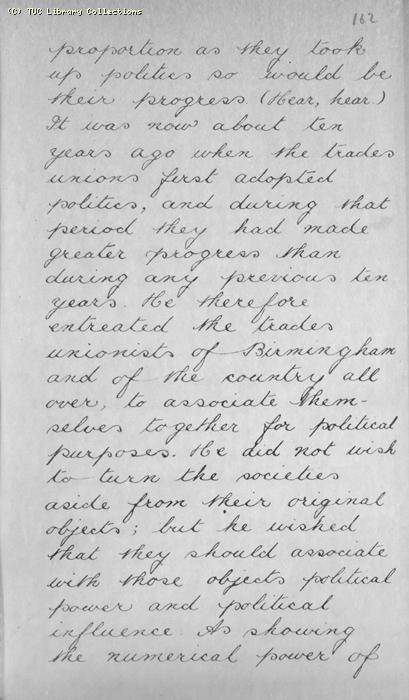 (C) TUC Library Collections
162
proportion as they took
up politics so would be
their progress. (Hear, hear.)
It was now about ten
years ago when the trades
unions first adopted
politics, and during that
period they had made
greater progress than
during any previous ten
years. He therefore
entreated the trades
unionists of Birmingham
and of the country all
over, to associate them-
selves together for political
purposes. He did not wish
to turn the societies
aside from their original
objects; but he wished
that they should associate
with those objects political
power and political
influence. As showing
the numerical power of